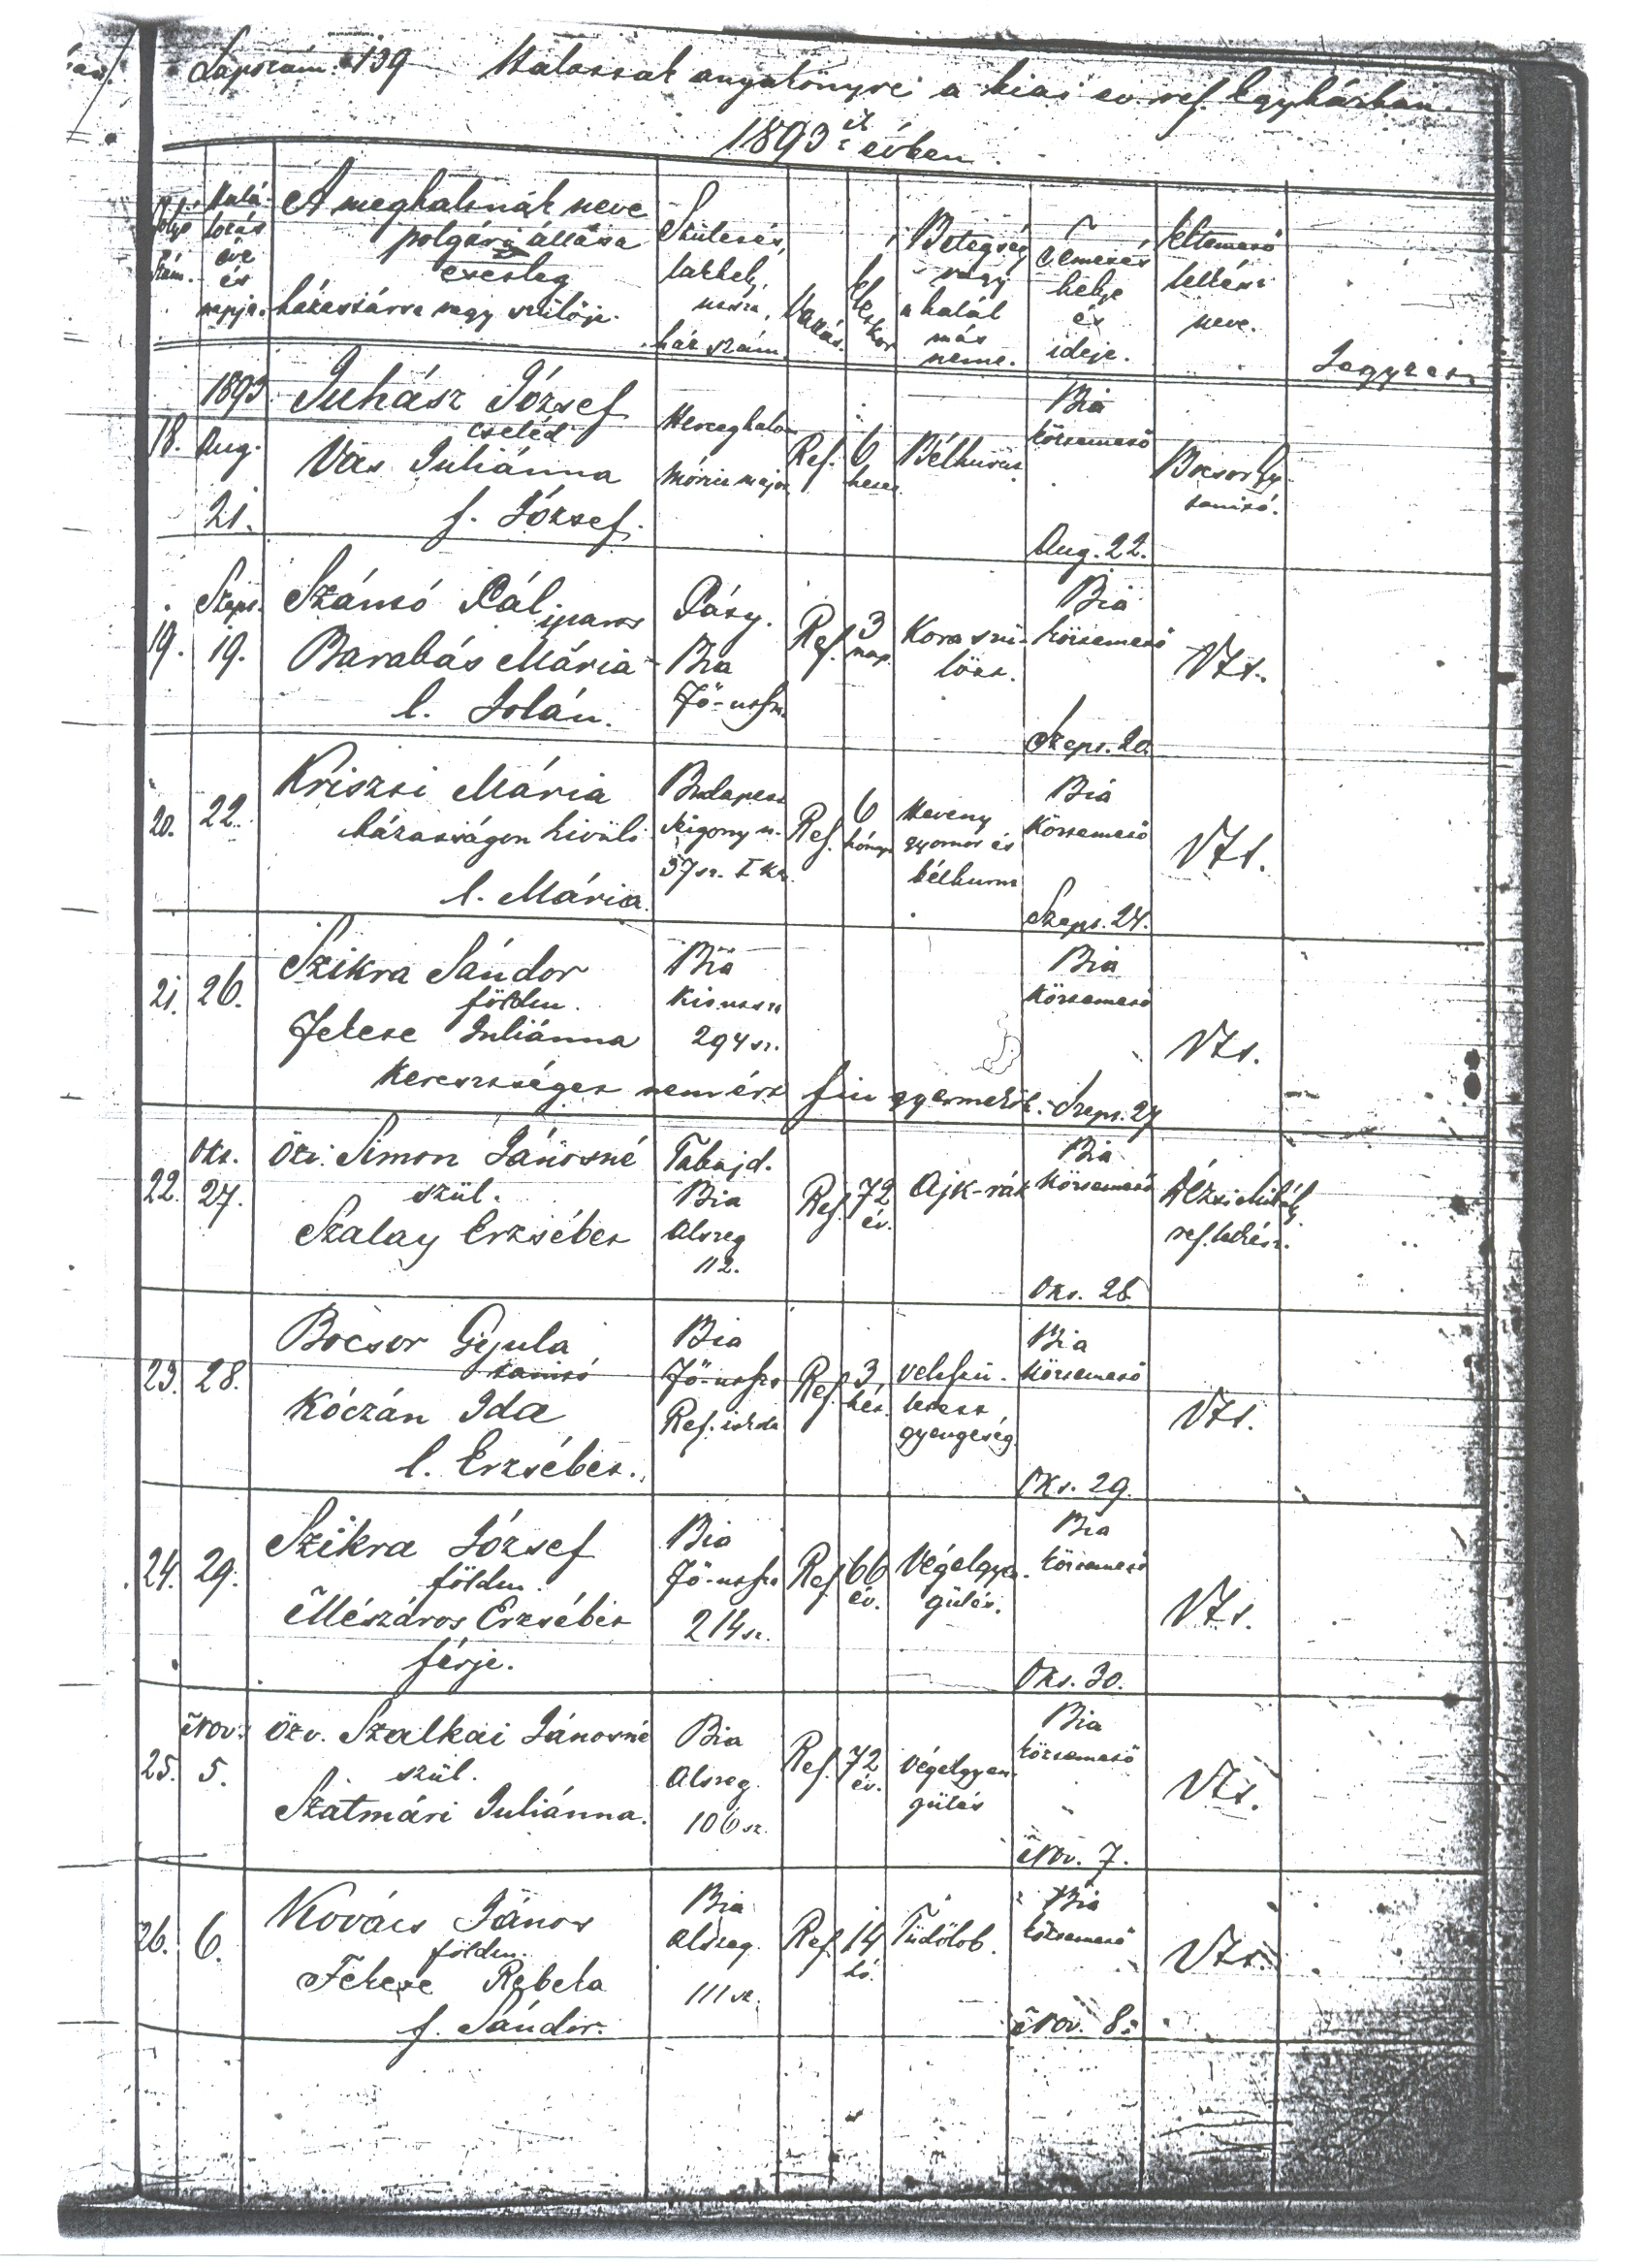 Lapszám 139 Halottak anyakönyve a biai ev. ref. Egyházban.
1893ik évben.
Folyó szám.
Halálozás éve és napja.
A meghaltnak neve
polgári állása
esetleg
házastársa vagy szülője.
Születés,
lakhely,
utcza,
házszám.
Vallás.
Életkor
Betegség
vagy
a halál
más
neme.
Temetés
helye
és
ideje.
Eltemető
lelkész
neve.
Jegyzet
18.
1893
Aug.
21.
Juhász József
cseléd
Vas Juliánna
f. József.
Herceghalom
Móricz major
Ref.
6
hetes
Bélhurut
Bia
köztemető
Aug. 22.
Bocsor Gy.
tanító.
19.
Szept.
19.
Szántó Pál
iparos
Barabás Mária
l. Jolán.
Páty.
Bia
Fő-utsza
Ref.
3
nap.
Kora szü-
lött.
Bia
köztemető
Szept. 20.
Uts.
20.
22.
Kriszti Mária
házasságon kivüli
l. Mária.
Budapest
Szigony u.
37 sz. I. ker.
Ref.
6
hónap
Heveny
gyomor és
bélhurut
Bia
Köztemető
Szept. 24.
Uts.
21.
26.
Szikra Sándor
földm.
Fekete Juliánna
Kereszséget nem ért fiu gyermekök.
Bia
Kis utsza
294 sz.
Bia
Köztemető
Szept. 27
Uts.
22.
Okt.
27.
Özv. Simon Jánosné
szül.
Szalay Erzsébet
Tabajd.
Bia
Alszeg
112.
Ref.
72
év.
Ajk-rák
Bia
Köztemető
Okt. 28
Mihály
ref. lelkész.
23.
28.
Bocsor Gyula
tanító
Kóczán Ida
l. Erzsébet.
Bia
Fő-utsza
Ref. iskola
Ref.
3
hét.
velszü-
letett
gyengeség.
Bia
Köztemető
Okt. 29.
Uts.
24.
29.
Szikra József
földm.
Mészáros Erzsébet
férje.
Bia
Fő-utsza
214 sz.
Ref
66
év.
Végelgyen-
gülés.
Bia
köztemető
Okt. 30.
Uts.
25.
Nov.
5.
Özv. Szalkai Jánosné
szül.
Szatmári Juliánna.
Bia
Alszeg.
106 sz.
Ref.
72
év.
Végelgyen-
gülés
Bia
köztemető
Nov. 7.
Uts.
26.
6.
Kovács János
földm.
Fekete Rebeka
f. Sándor.
Bia
Alszeg.
111 sz.
Ref.
14
hó.
Tüdőlob.
Bia
köztemető
Nov. 8.
Uts.